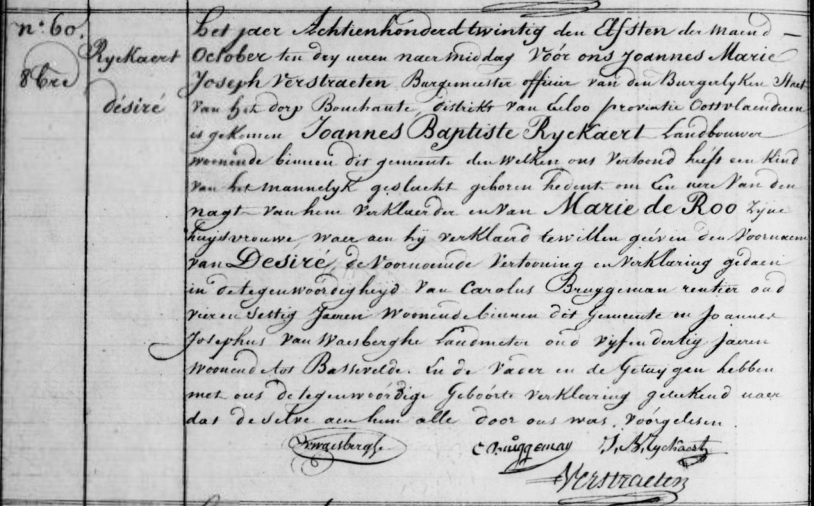 n: 60.
8bre
Ryckaert
désiré
Het jaer Achtienhonderd twintig den Elfsten der maend
October ten dry ueren naer middag vóór ons Joannes Marie
Joseph Verstraeten Burgemeester officier van den Burgerlyken Staet
van het dorp Bouchaute, distrikt van Eecloo provintie Oostvlaenderen
is gekomen Joannes Baptiste Ryckaert Landbouwer
woonende binnen dit gemeente den welken ons vertoond heeft een kind
van het mannelyk geslacht geboren hedent om Een uere van den
nagt van hem verklaerder en van Marie de Roo zyne
huysvrouwe, waer aen hy verklaerd te willen geéven den voornaem
van Desiré, de voornoemde vertooning en verklaring gedaen
in de tegenwoordigheyd van Carolus Bruggeman rentier oud
vier en sestig Jaeren woonende binnen dit Gemeente en Joannes
Josephus van Waesberghe Landmeter oud vyf en dertig jaeren
woonende tot Bassevelde. En de vader en de Getuygen hebben
met ons de tegenwoórdige Geboórte verklaring geteekend naer
dat de selve aen hun alle door ons was vóórgelesen.
Vwaesberghe C Bruggeman J. B. Ryckaert
Verstraeten